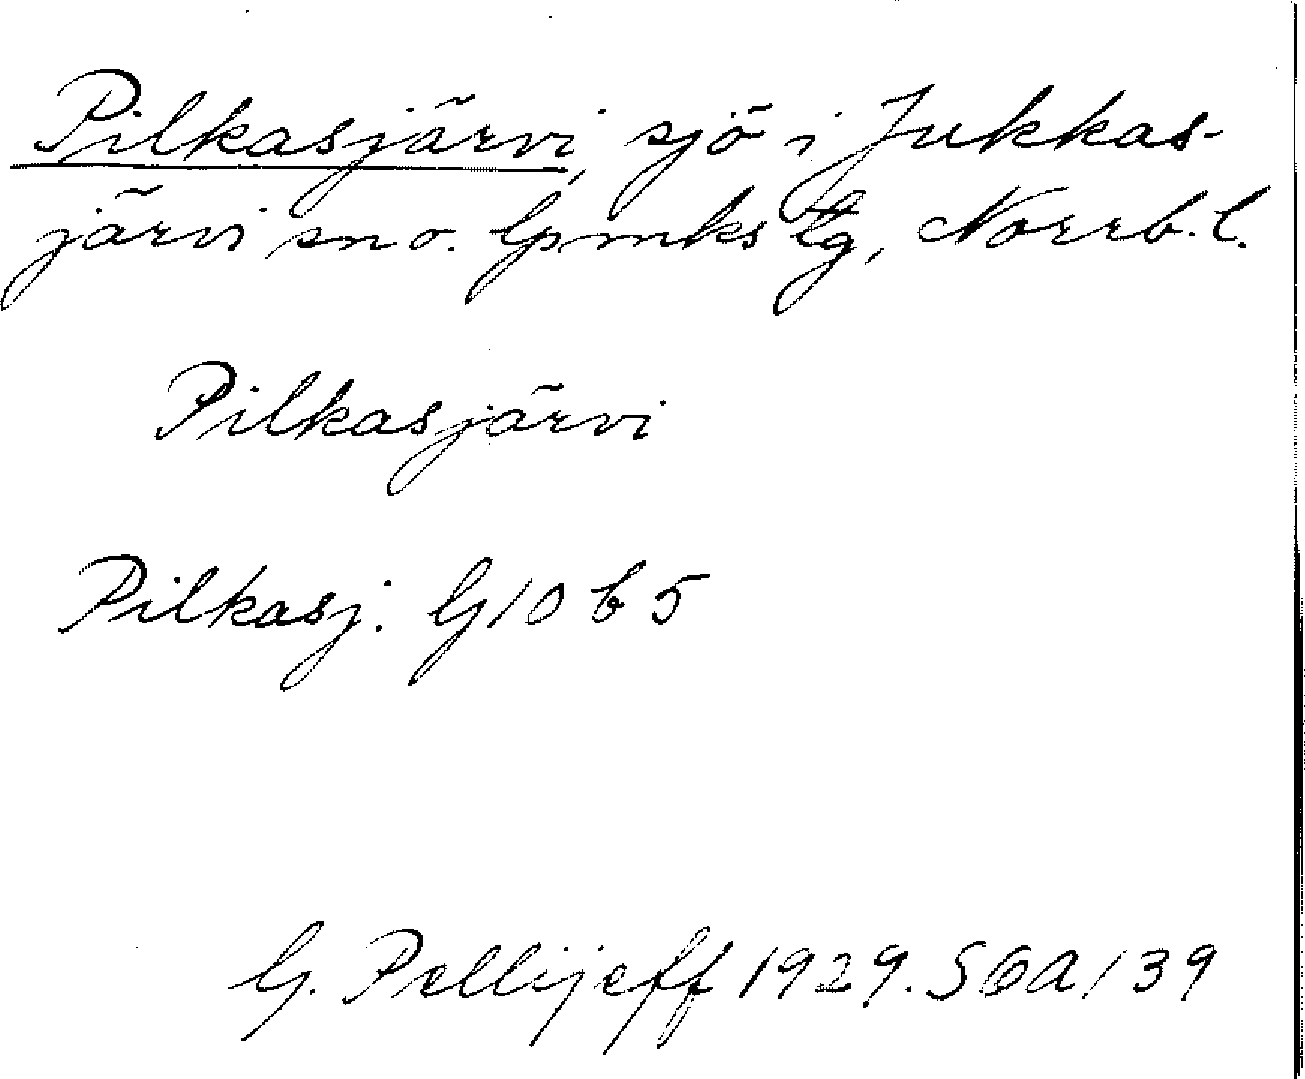 Pilkasjärvi, sjö i Jukkas-
järvi sn o. lpmks tg, Norrb. l.
Pilkasjärvi
Pilkasj. G 10 b 5
G. Pellijeff 1929. SGA/39